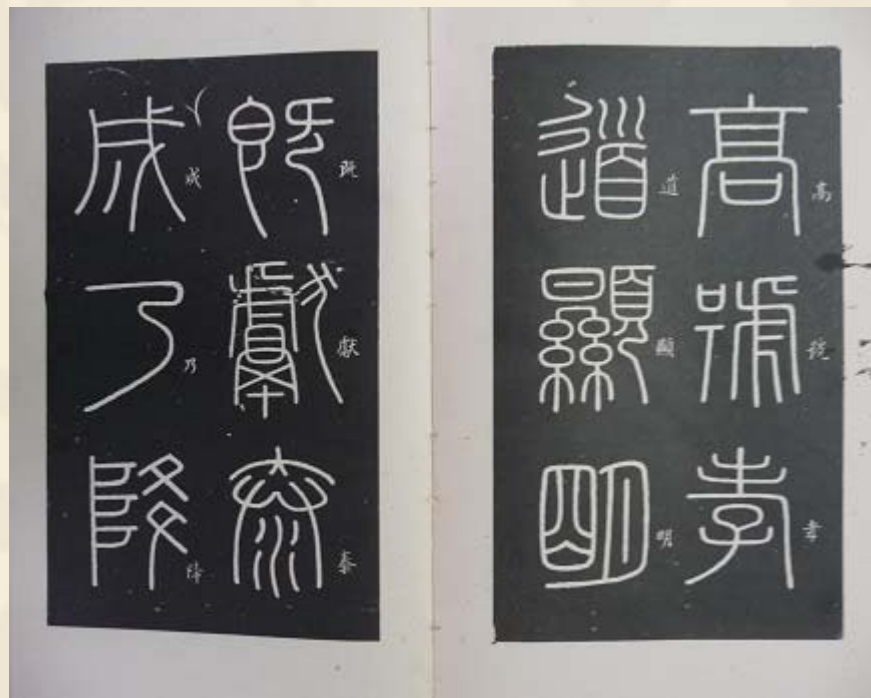 高號孝
高號孝
道顯明
道顯明
既獻泰
既獻泰
成乃降
成乃降